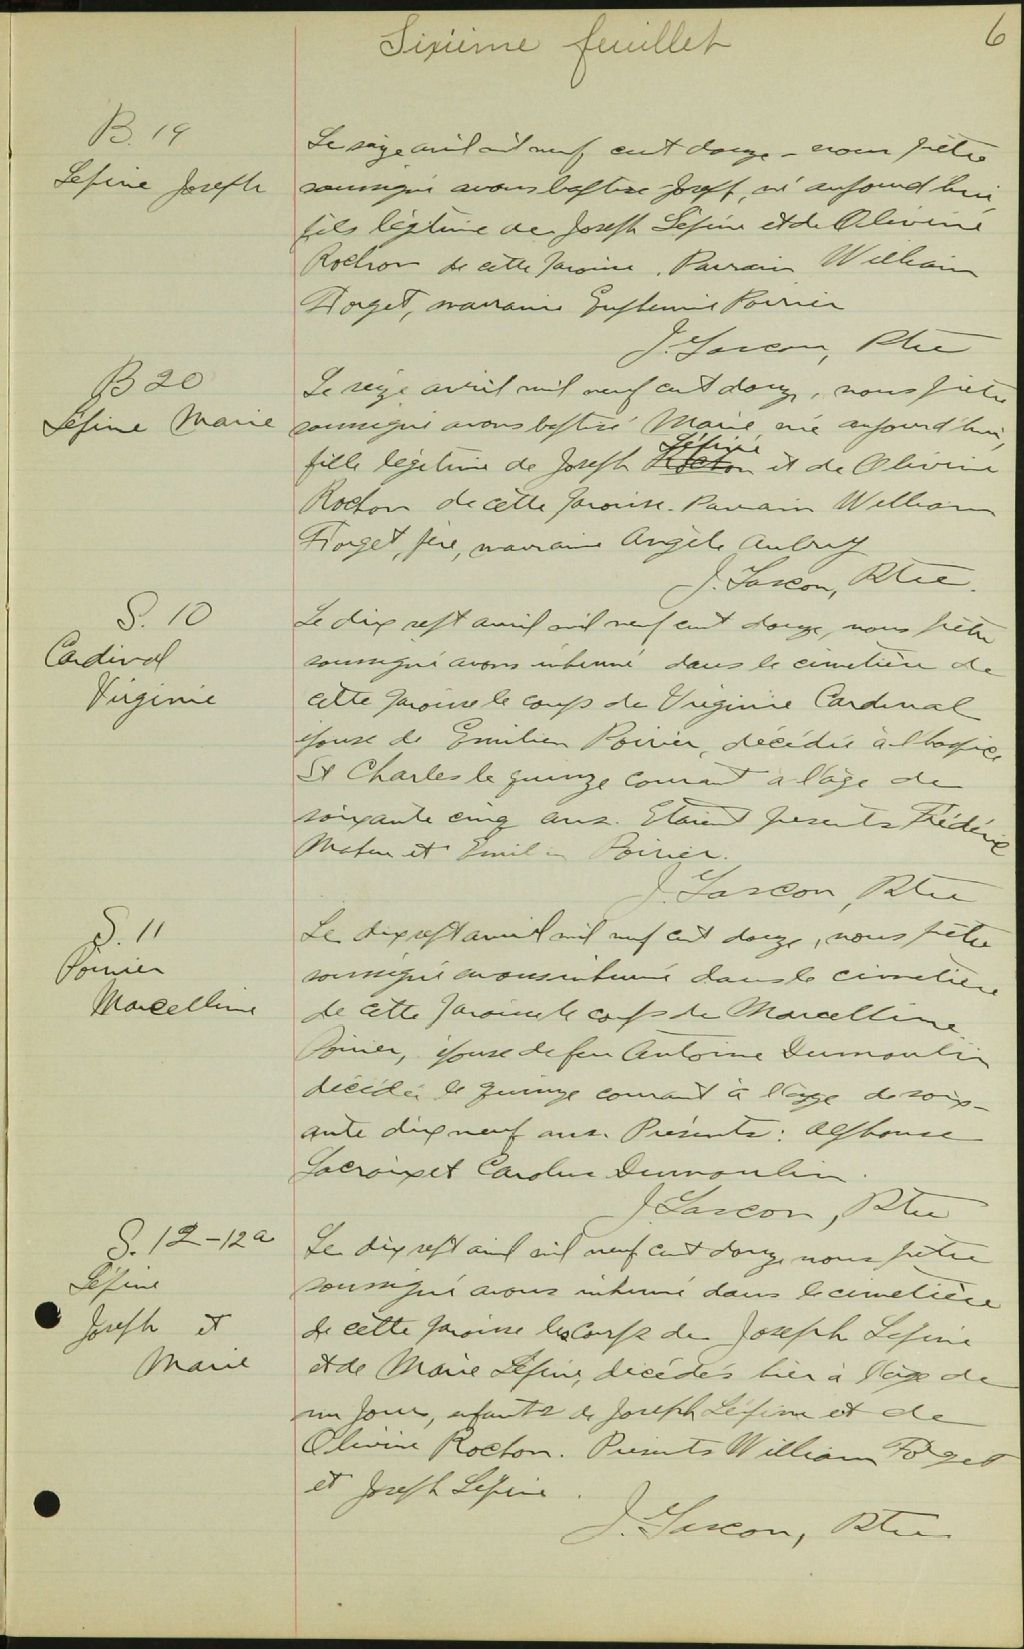 Sixième feuillet
6
B. 19
Lépine Joseph
Le seize avril mil neuf cent douze - nous prêtre
soussigné avons baptisé Joseph, né aujourd'hui,
fils légitime de Joseph Lépine et de Olivine
Rochon de cette paroisse. Parrain William
Forget, marraine Euphemie Poirier
J. Gascon, Ptre
B 20
Lépine Marie
Le seize avril mil neuf cent douze, nous prêtre
soussigné avons baptisé Marie née aujourd'hui,
Lépine
fille légitime de Joseph Rocton et de Olivine
Rocton de cette paroisse. Parrain William
Forget, père, marraine Angèle Aubry
J. Gascon, Ptre.
S. 10
Cardinal
Virginie
Le dix sept avril mil neuf cent douze, nous prêtre
soussigné avons inhumé dans le cimetière de
cette paroisse le corps de Virginie Cardinal
épouse de Emilien Poirier, décédée à l'hospice
St Charles le quinze courant à l'âge de
soixante cinq ans. Etaient présents Frédéric
et Emilien Poirier.
J. Gascon, Ptre
S. 11
Poirier
Marcelline
Le dix sept avril mil neuf cent douze, nous prêtre
soussigné avons inhumé dans le cimetière
de cette paroisse le corps de Marcelline
Poirier, épouse de feu Antoine Dumoulin
décédée le quinze courant à l'âge de soix-
ante dix neuf ans. Présents: Alphonse
Lacroix et Dumoulin.
J. Gascon, Ptre
S. 12-12a
Lépine
Joseph et
Marie
Le dix sept avril mil neuf cent douze nous prêtre
soussigné avons inhumé dans le cimetière
de cette paroisse les corps de Joseph Lépine
et de Marie Lépine, décédés hier à l'âge de
un jour, enfants de Joseph Lépine et de
Olivine Rocton. Présents William Forget
et Joseph Lépine.
J. Gascon, Ptre